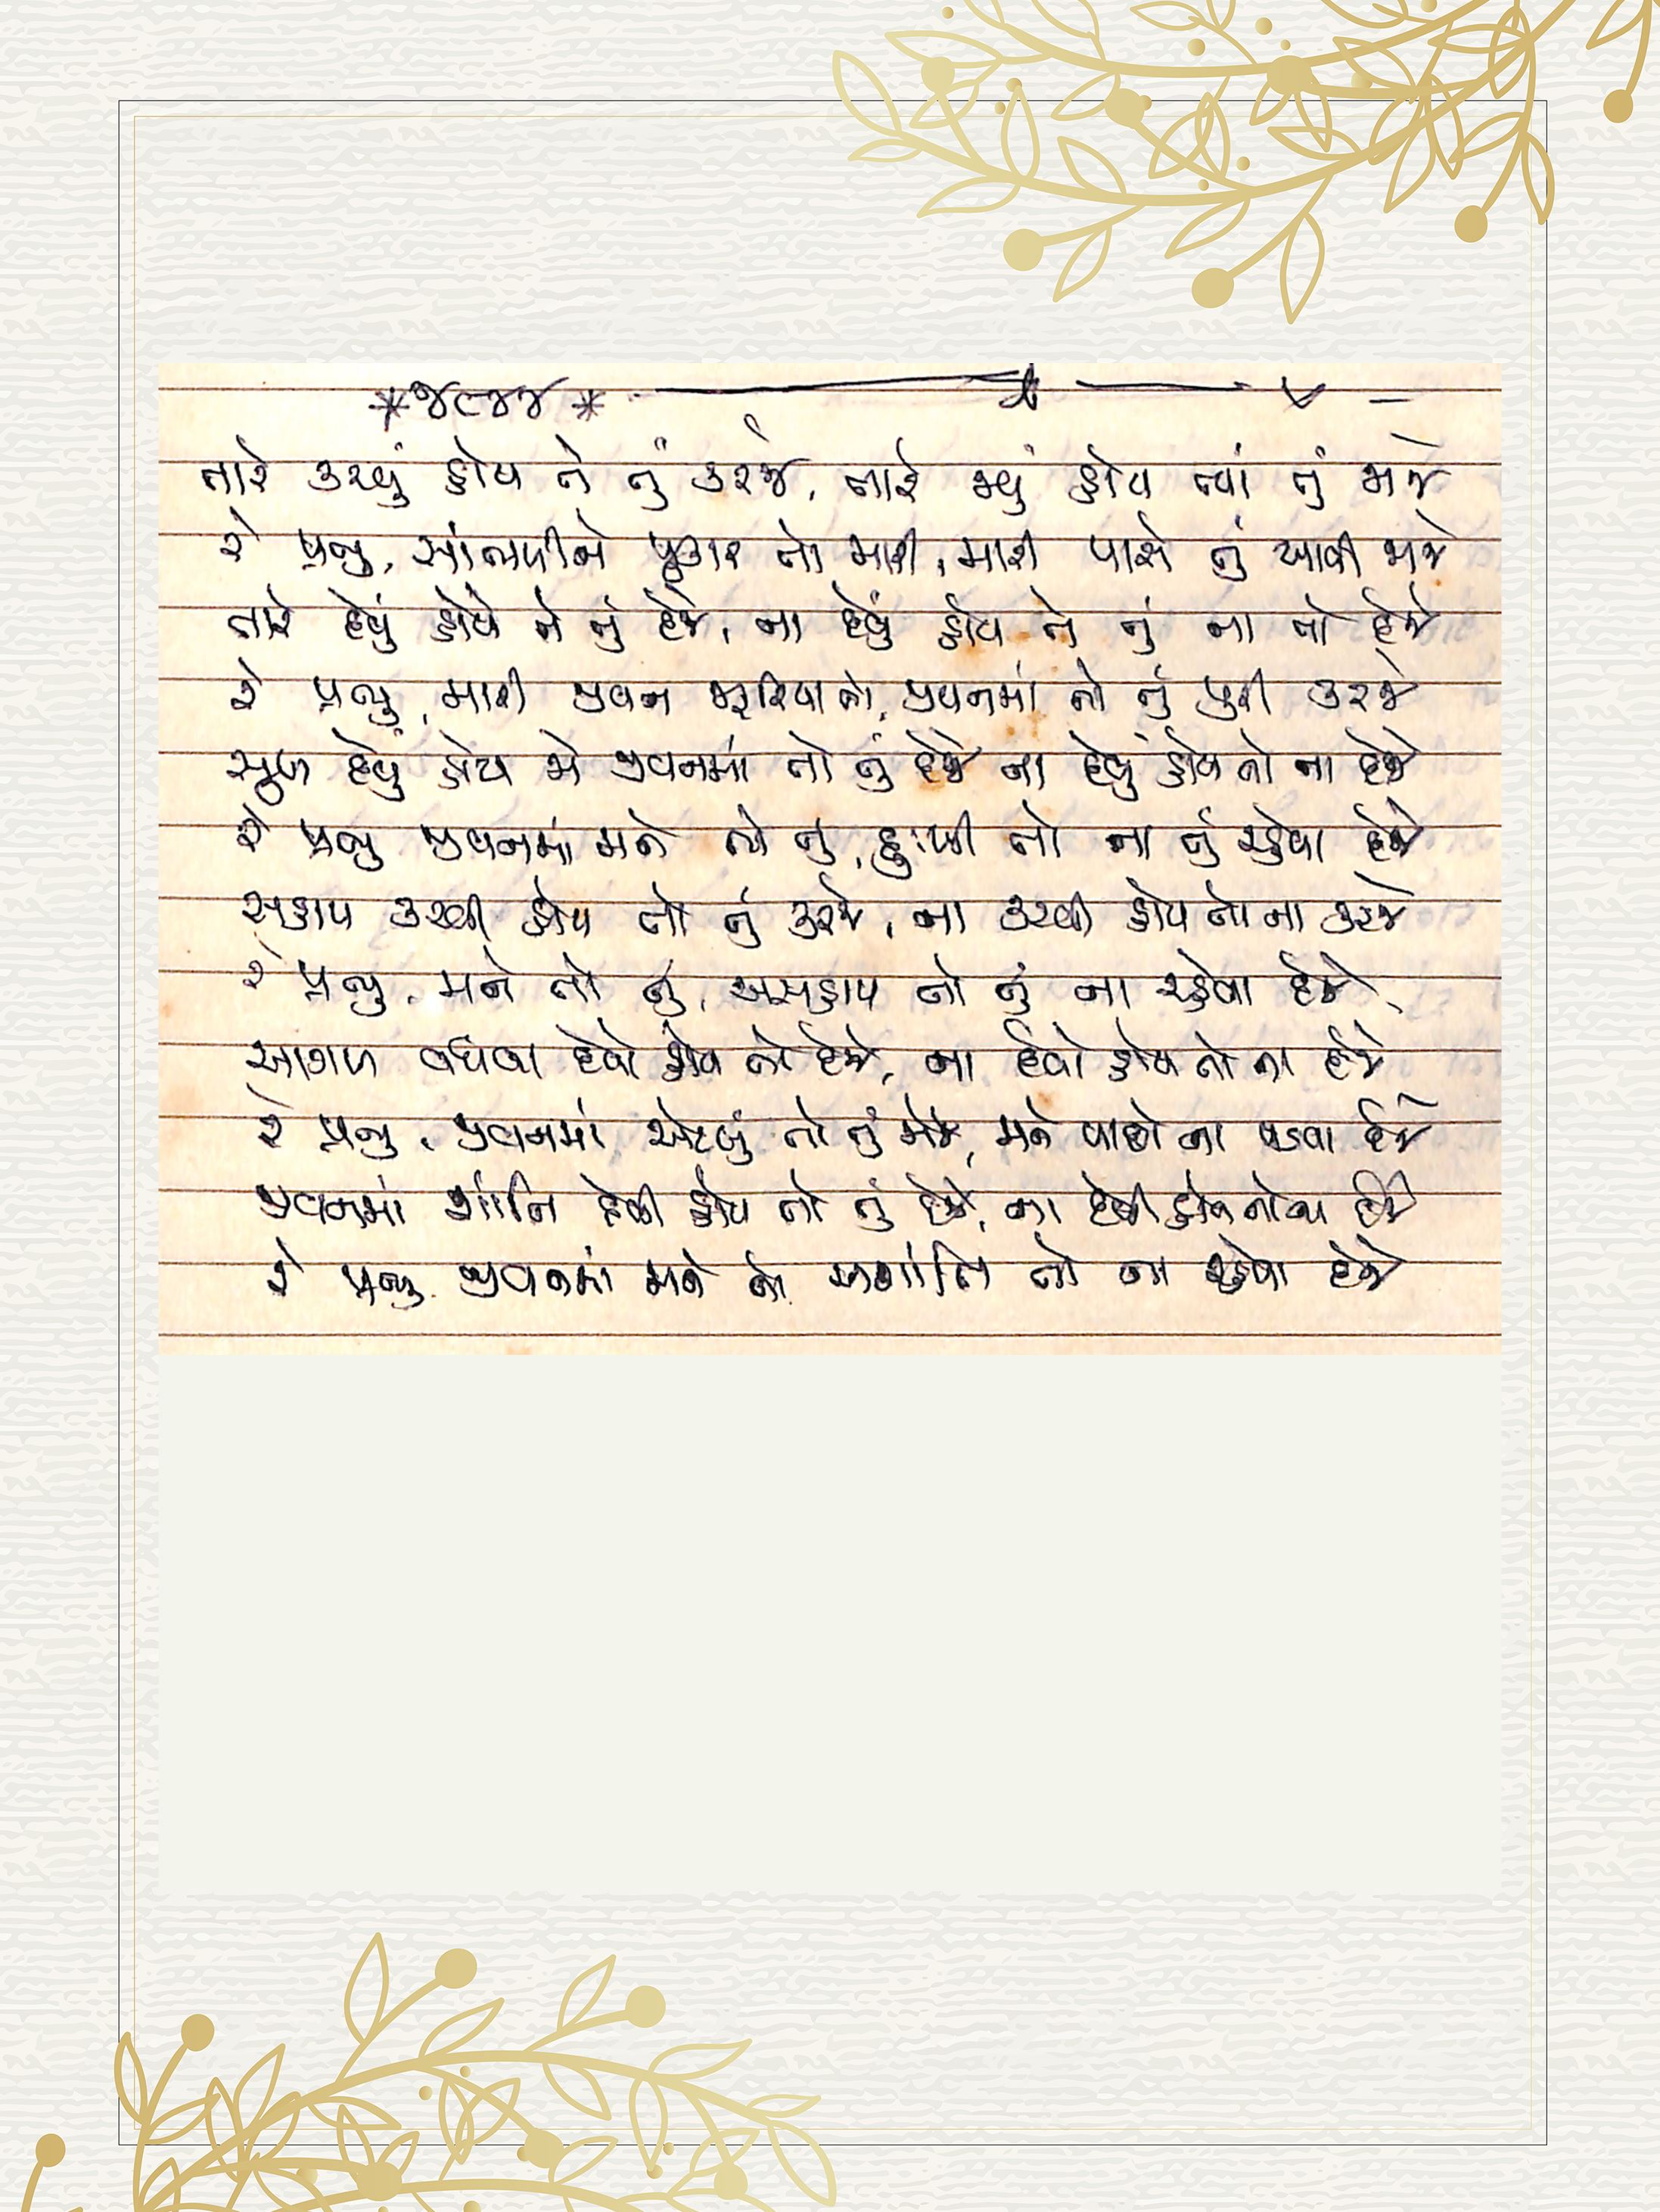 તારે કરવું હોય તે તું કરજે, તારે જવું હોય ત્યાં તું જાજે
રે પ્રભુ, સાંભળીને પૂકાર તો મારી, મારી પાસે તું આવી જાજે
તારે દેવું હોય તે તું દેજે, ના દેવું હોય તે તું ના તો દેજે
રે પ્રભુ, મારી જીવન જરૂરિયાતો, જીવનમાં તો તું પુરી કરજે
સુખ દેવું હોય જો જીવનમાં તો તું દેજે ના દેવું હોય તો ના દેજે
રે પ્રભુ જીવનમાં મને તો તું, દુઃખી તો ના તું રહેવા દેજે
સહાય કરવી હોય તો તું કરજે, ના કરવી હોય તો ના કરજે
રે પ્રભુ, મને તો તું, અસહાય તો તું ના રહેવા દેજે
આગળ વધવા દેવો હોય તો દેજે, ના દેવો હોય તો ના દેજે
રે પ્રભુ, જીવનમાં એટલું તો તું જોજે, મને પાછો ના પડવા દેજે
જીવનમાં શાંતિ દેવી હોય તો તું દેજે, ના દેવી હોય તો ના દેજે
રે પ્રભુ જીવનમાં મને તો અશાંતિ તો ના રહેવા દેજે